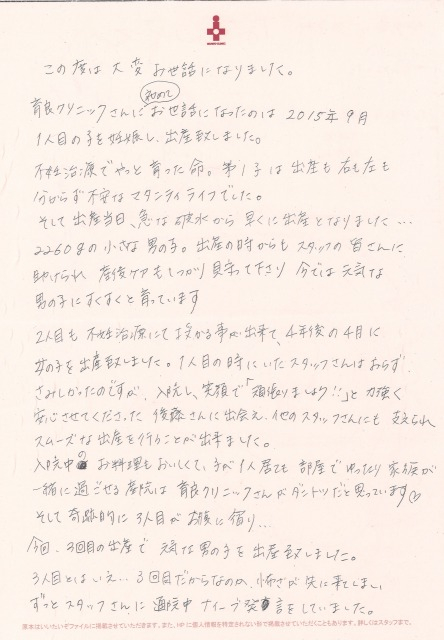 この度は大変お世話になりました。
初めて
育良クリニックさんにお世話になったのは 2015年9月
1人目の子を妊娠し、出産致しました。
不妊治療でやっと育った命。第1子は出産も右も左も
分からず不安なマタニティライフでした。
そして出産当日、急な破水から早くに出産となりました…
2260gの小さな男の子。出産の時からもスタッフの皆さんに
助けられ 産後ケアもしっかり見守って下さり 今では元気な
男の子にすくすくと育っています
2人目も不妊治療にて授かる事が出来て、4年後の4月に
女の子を出産致しました。1人目の時にいたスタッフさんはおらず
さみしかったのですが、入院し、笑顔で「頑張りましょう!!」と力強く
安心させてくださった 後藤さんに出会え、他のスタッフさんにも支えられ
スムーズな出産を行うことが出来ました。
入院中のお料理もおいしくて、子が1人居ても部屋でゆったり家族が
一緒に過ごせる産院は育良クリニックさんがダントツだと思っています♡
そして奇跡的に3人目がお腹に宿り…
今回、3回目の出産で 元気な男の子を出産致しました。
3人目とはいえ…3回目だからなのか、怖さが先に来てしまい
ずっとスタッフさんに通院中ナイーブ発言をしていました。
原本はいいたいぞファイルに掲載させていただきます。また、HPに個人情報を特定されない形で掲載させていただくこともあります。詳しくはスタッフまで。